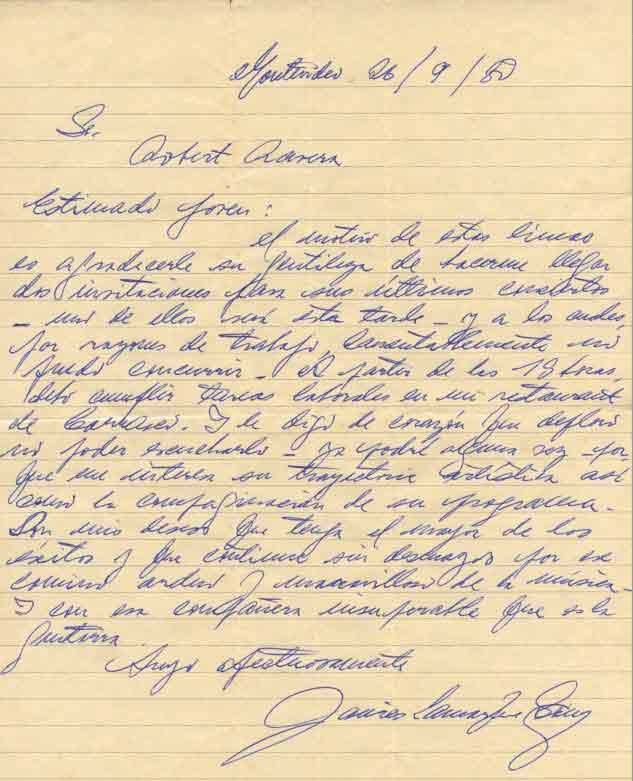 Montevideo 26/9/80
Sr.
Robert Ravera
Estimado joven:
el motivo de estas líneas
es agradecerle su gentileza de hacerme llegar
dos invitaciones para sus últimos conciertos
- uno de ellos será esta tarde - y a los cuales,
por razones de trabajo, lamentablemente no
puedo concurrir - A partir de las 19 horas,
debo cumplir tareas laborales en un restaurant
de Carrasco. Y le digo de corazón que deploro
no poder escucharlo - ya podré alguna vez - por
que me interesa su trayectoria artística así
como la compaginación de su programa.
Son mis deseos que tenga el mayor de los
éxitos y que continue sin desmayos por ese
camino arduo y maravilloso de la música -
Y con esa compañera insuperable que es la
guitarra.
Suyo afectuosamente